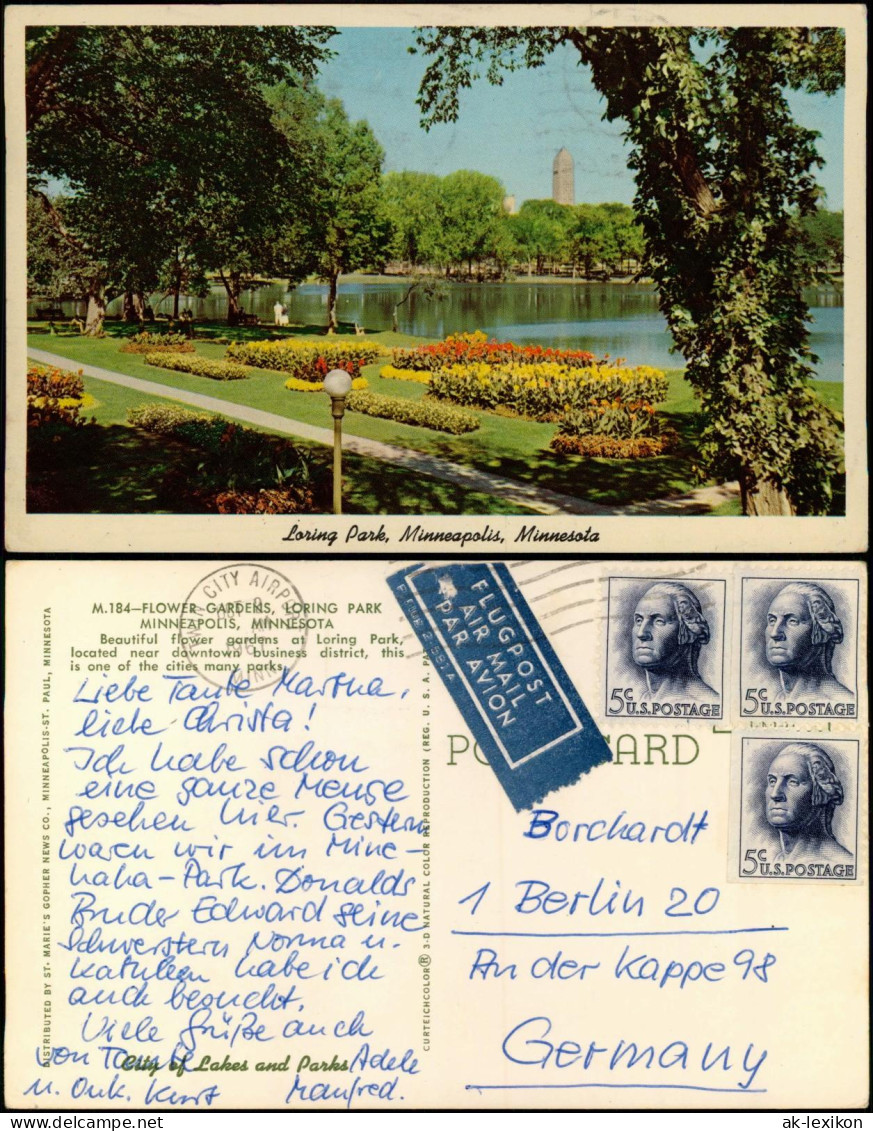 Loring Park, Minneapolis, Minnesota
M.184—FLOWER GARDENS, LORING PARK
MINNEAPOLIS, MINNESOTA
Beautiful flower gardens at Loring Park,
located near downtown business district, this
is one of the cities many parks.
Liebe Tante Martha,
liebe Christa!
Ich habe schon
eine ganze Menge
gesehen hier. Gestern
waren wir im Mine-
haha-Park. Donalds
Bruder Edward seine
Schwestern Norma u.
Kathleen habe ich
auch besucht.
Viele Grüße auch
von Tante Adele
u. Onk. Kurt Manfred.
City of Lakes and Parks
DISTRIBUTED BY ST. MARIE'S GOPHER NEWS CO., MINNEAPOLIS-ST. PAUL, MINNESOTA
CURTEICHCOLOR® 3-D NATURAL COLOR REPRODUCTION (REG. U. S. A. PA
CITY AIRPO
MINN
FLUGPOST
AIR MAIL
PAR AVION
5c U.S. POSTAGE
5c U.S. POSTAGE
5c U.S. POSTAGE
PO CARD
Borchardt
1 Berlin 20
An der Kappe 98
Germany
ak-lexikon